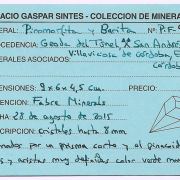 ACIO GASPAR SINTES - COLECCION DE MINERA
Piromorfita y Barita Nº P.F-
OCEDENCIA: Geoda del Túnel, San Andrés
Villaviciosa de Córdoba, E
Córdo
ERALES ASOCIADOS:
ENSIONES: 9x6x4,5 cm.
ENCIÓN: Fabre Minerals
HA: 28 de agosto de 2015
Cristales hasta 8mm
nados por un prisma corto y el pinacoide
s y aristas muy definidas color verde man